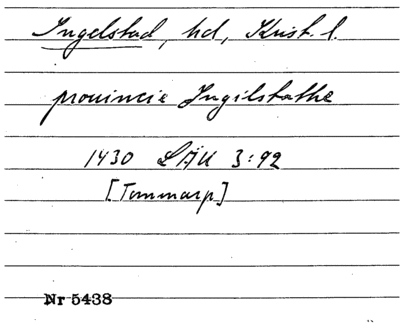 Ingelstad, hd, Krist. l.
provincie Ingilstathe
1430 LÄU 3:92
[Tommarp]
Nr 5438